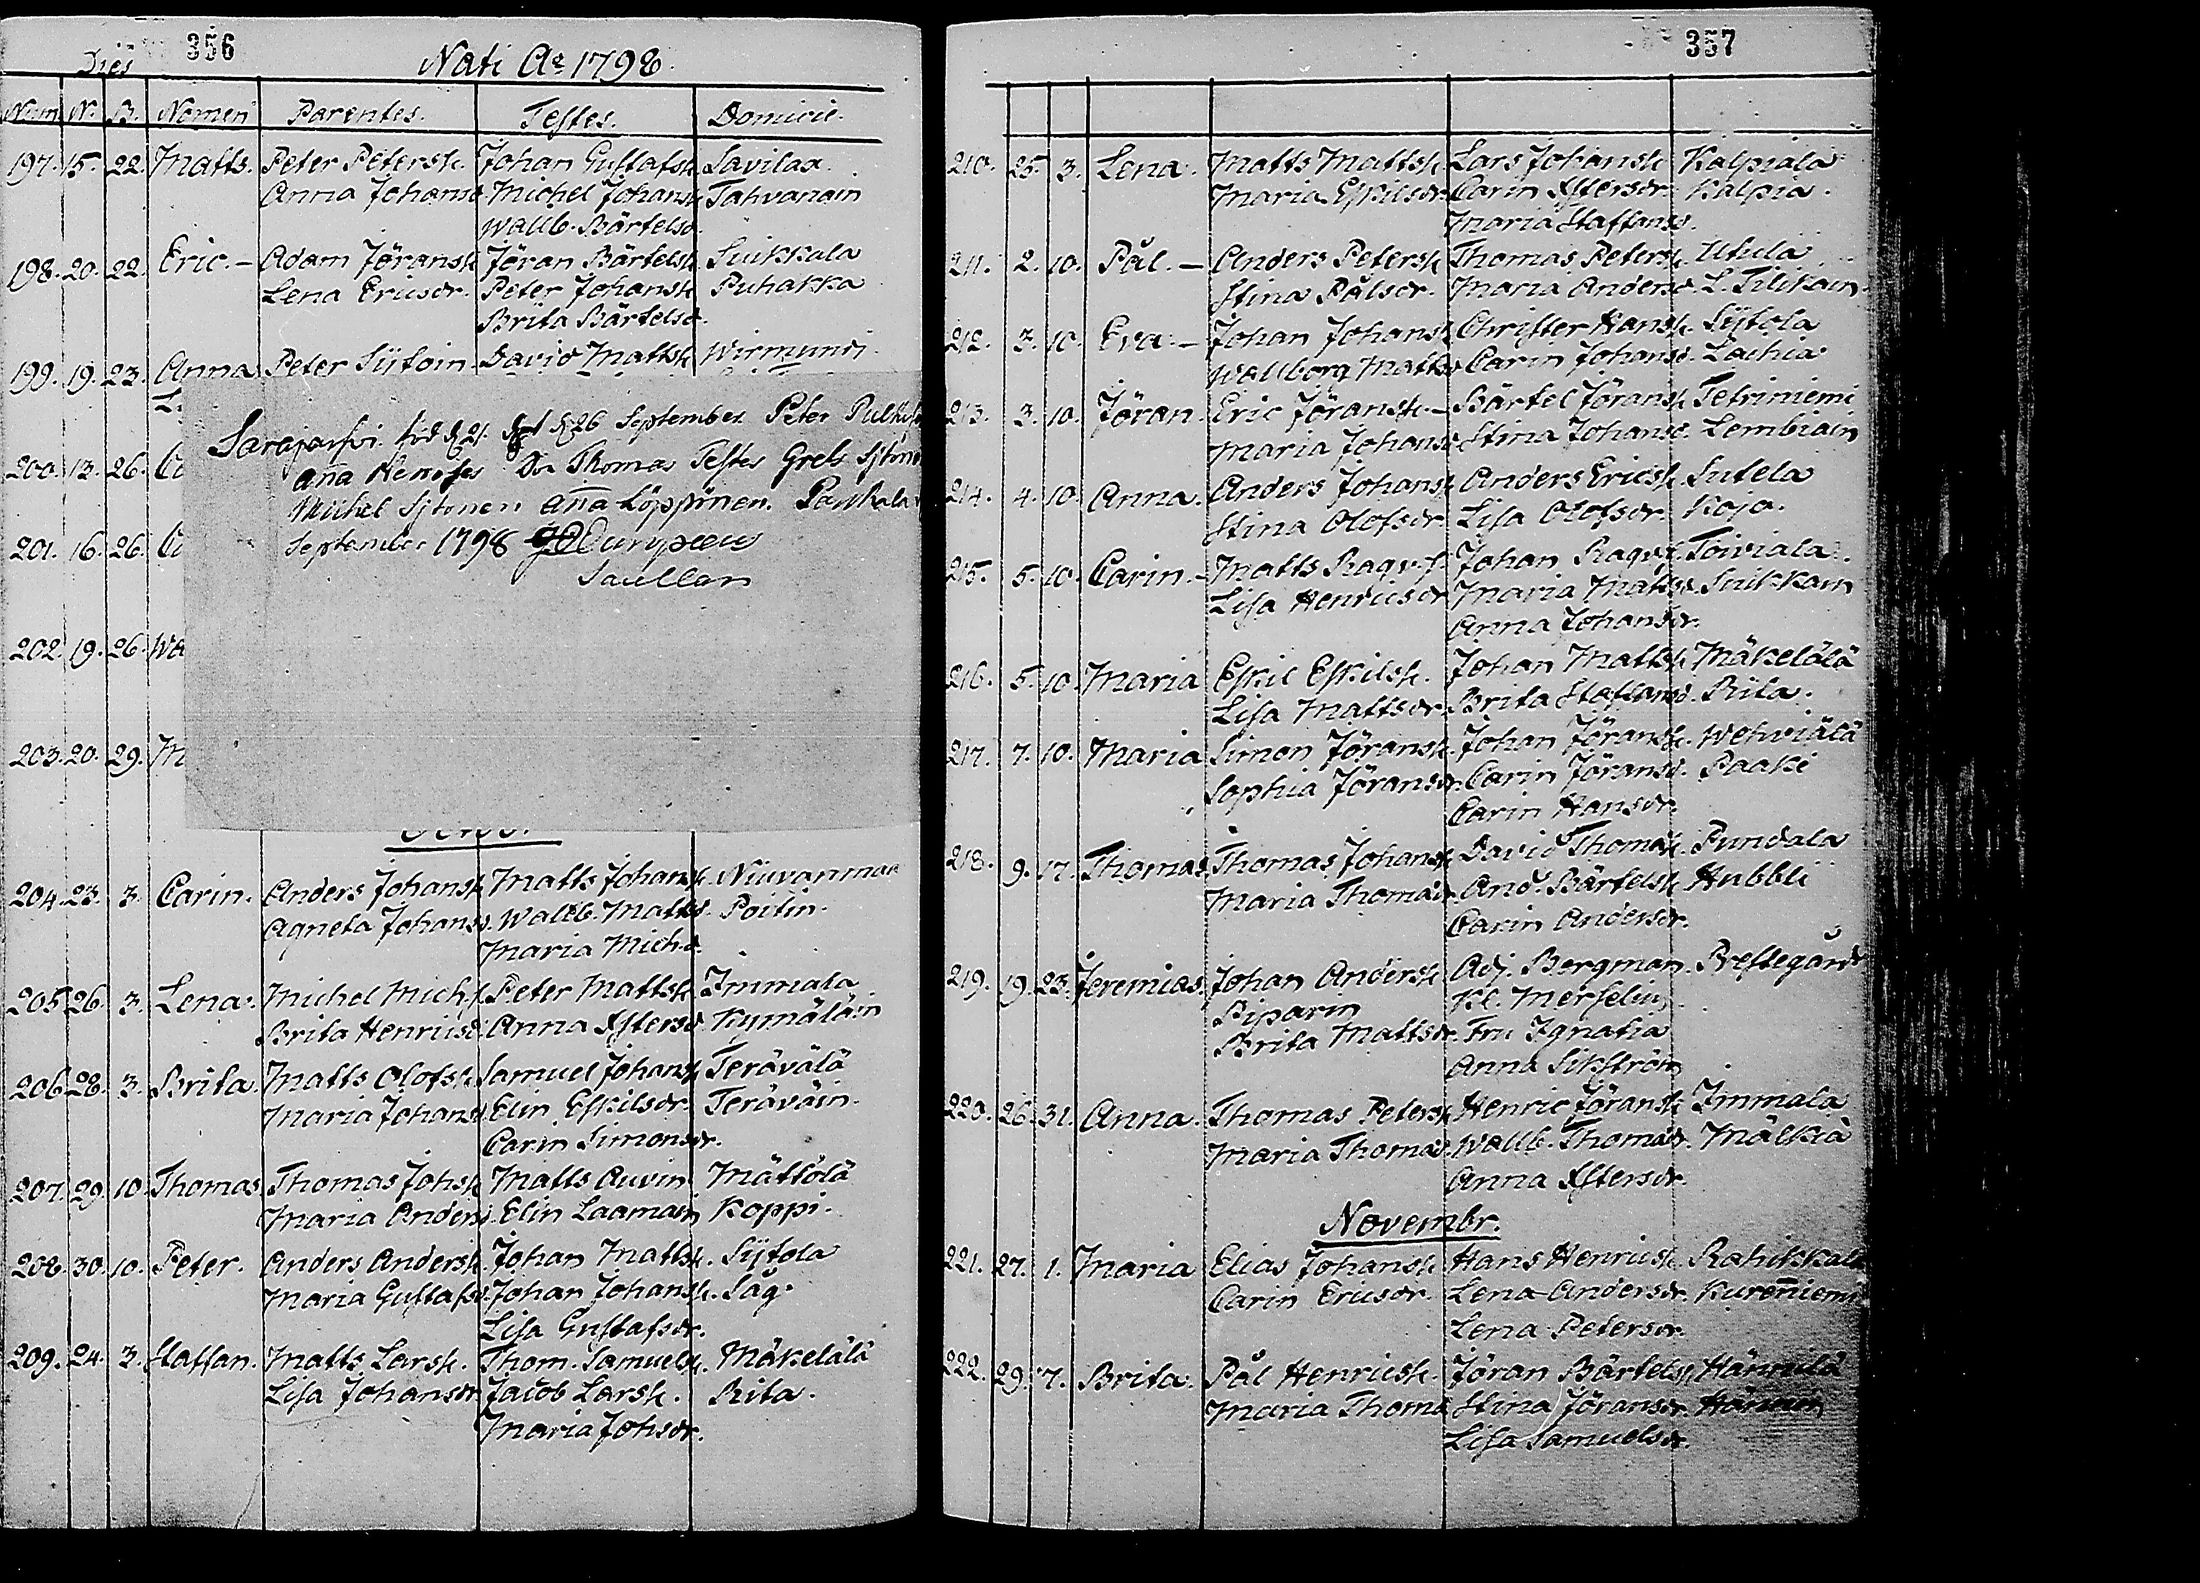 356
Nati Ao 1798.
Dies
Num. N. B. Nomen Parentes. Testes. Domicil.
197. 15. 22. Matts. Peter Petersk. Johan Gustafsk. Savilax.
Anna Johansd. Michel Johansk. Tahvanain
Wallb. Bärtelsd.
198. 20. 22. Eric. – Adam Jöransk. Jöran Bärtelsk. Suikkala
Lena Ericsdr. Peter Johansk. Puhakka
Brita Bärtelsd.
199. 19. 23. Anna Peter Sijtoin David Mattsk. Wirmundi
200. 13. 26.
201. 16. 26.
202. 19. 26. Wa
203. 20. 29. M
född d. 21. d. 26 September Peter
Aña Dr Thomas Testes Gret
Michel Sijtonen Aña Löppönen.
September 1798 Europæus
204. 23. 3. Carin. Anders Johansk. Matts Johansk.
Agneta Johansd. Wallb. Mattsd. Poitin.
Maria Michsd.
205. 26. 3. Lena. Michel Michs. Peter Mattsk. Immala
Brita Henricsd. Anna Ksfersd. Kymäläin
206. 28. 3. Brita. Matts Olofsk. Samuel Johansk. Terävälä
Maria Johansd. Elin Eskilsdr. Teräväin.
Carin Simonsdr.
207. 29. 10. Thomas Thomas Johsk. Matts Auvin Mättölä
Maria Andersd. Elin Laamain Koppi.
208. 30. 10. Peter. Anders Andersk. Johan Mattsk. Sijtola
Maria Gustafsd. Johan Johansk. Såg.
Lisa Gustafsdr.
209. 24. 3. Staffan. Matts Larsk. Thom. Samuelsk. Mäkelälä
Lisa Johansdr. Jacob Larsk. Rita.
Maria Johsdr.
357
210. 25. 3. Lena. Matts Mattsk. Lars Johansk. Kalpiala
Maria Eskilsdr. Carin Ksfersdr. Kalpia.
Maria Staffansd.
211. 2. 10. Pål. – Anders Petersk. Thomas Petersk. Utula
Stina Pålsdr. Maria Andersd. L. Tilikain.
212. 3. 10. Eva. – Johan Johansk. Christer Hansk. Sijtola
Wallborg Mattsd. Carin Johansd. Lachia.
213. 3. 10. Jöran. Eric Jöransk. – Bärtel Jöransk. Tetriniemi
Maria Johansd. Stina Johansd. Lembiäin
214. 4. 10. Anna. Anders Johansk. Anders Ericsk. Sutela
Stina Olofsdr. Lisa Olofsdr. Kojo.
215. 5. 10. Carin. – Matts Ragv.s. Johan Ragv.s. Toiviala.
Lisa Henricsdr. Maria Mattsd. Suikkain
Anna Johansdr.
216. 5. 10. Maria Eskil Eskilsk. Johan Mattsk. Mäkelälä
Lisa Mattsdr. Brita Staffansd. Riita.
217. 7. 10. Maria Simon Jöransk. Johan Jöransk. Wehviälä
Sophia Jöransdr. Carin Jöransd. Paaki
Carin Hansdr.
218. 9. 17. Thomas. Thomas Johansk. David Thomsk. Pundala
Maria Thomasd. And. Bärtelsk. Hubbli
Carin Andersdr.
219. 19. 23. Jeremias. Johan Andersk. Adj. Bergman. Prestegård
Piparin Kl. Merselin
Brita Mattsdr. Fru Ignatia
Anna Sikström
220. 26. 31. Anna. Thomas Petersk. Henric Jöransk. Immala
Maria Thomasd. Wallb. Thomasdr. Mälkiä
Anna Ksfersdr.
Novembr.
221. 27. 1. Maria Elias Johansk. Hans Henricsk. Rahikkala
Carin Ericsdr. Lena Andersdr. Kureñiemi
Lena Petersdr.
222. 29. 7. Brita. Pål Henricsk. Jöran Bärtelsk. Hännilä
Maria Thomas Stina Jöransdr.
Lisa Samuelsdr.